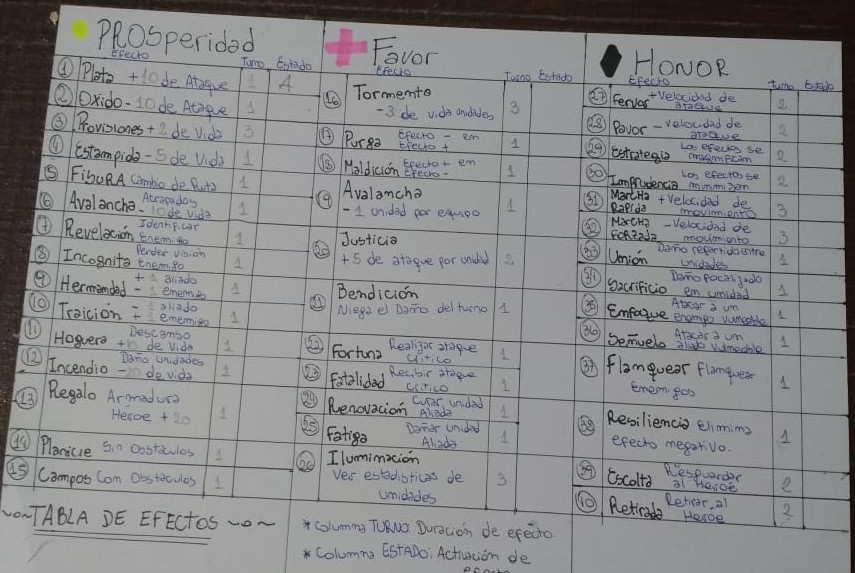 PROSperidad
Efecto Turno Estado
1 Plata +10 de Ataque 1 A
2 Oxido -10 de Ataque 1
3 Provisiones +2 de Vida 3
4 Estampida -5 de Vida 1
5 FISURA Cambio de Ruta 1
6 Avalancha Atrapados
-10 de vida 1
7 Revelación Identificar
Enemigo 1
8 Incognita Perder visión
Enemigo 1
9 Hermandad + 1 aliado
- 1 enemigo 1
10 Traición - 1 aliado
+ 1 enemigo 1
11 Hoguera Descanso
+10 de Vida 1
12 Incendio Daño unidades
-20 de vida 1
13 Regalo Armadura
Héroe +20 1
14 Planicie Sin Obstáculos 1
15 Campos Con Obstáculos 1
TABLA DE EFECTOS
Favor
Efecto Turno Estado
16 Tormento
-3 de vida unidades 3
17 Purga Efecto - en
Efecto + 1
18 Maldición Efecto + en
Efecto - 1
19 Avalancha
- 1 unidad por equipo 1
20 Justicia
+5 de ataque por unidad 2
21 Bendición
Niega el Daño del turno 1
22 Fortuna Realizar ataque
Critico 1
23 Fatalidad Recibir ataque
Critico 1
24 Renovación Curar unidad
Aliada 1
25 Fatiga Dañar unidad
Aliada 1
26 Iluminación
Ver estadísticas de
unidades 3
* Columna TURNO: Duración de efecto.
* Columna ESTADO: Activación de
efecto
HONOR
Efecto Turno Estado
27 Fervor +Velocidad de
ataque 2
28 Pavor -velocidad de
ataque 2
29 Estrategia Los efectos se
magnifican 2
30 Imprudencia Los efectos se
minimizan 2
31 Marcha Rapida +Velocidad de
movimiento 3
32 Marcha Forzada -Velocidad de
movimiento 3
33 Unión Daño repartido entre
unidades 1
34 Sacrificio Daño focalizado
en unidad 1
35 Enfoque Atacar a un
enemigo vulnerable 1
36 Señuelo Atacar a un
aliado vulnerable 1
37 Flanquear Flanquear
Enemigos 1
38 Resiliencia Elimina
efecto negativo. 1
39 Escolta Resguardar
al Héroe 2
40 Retirada Retirar al
Héroe 2